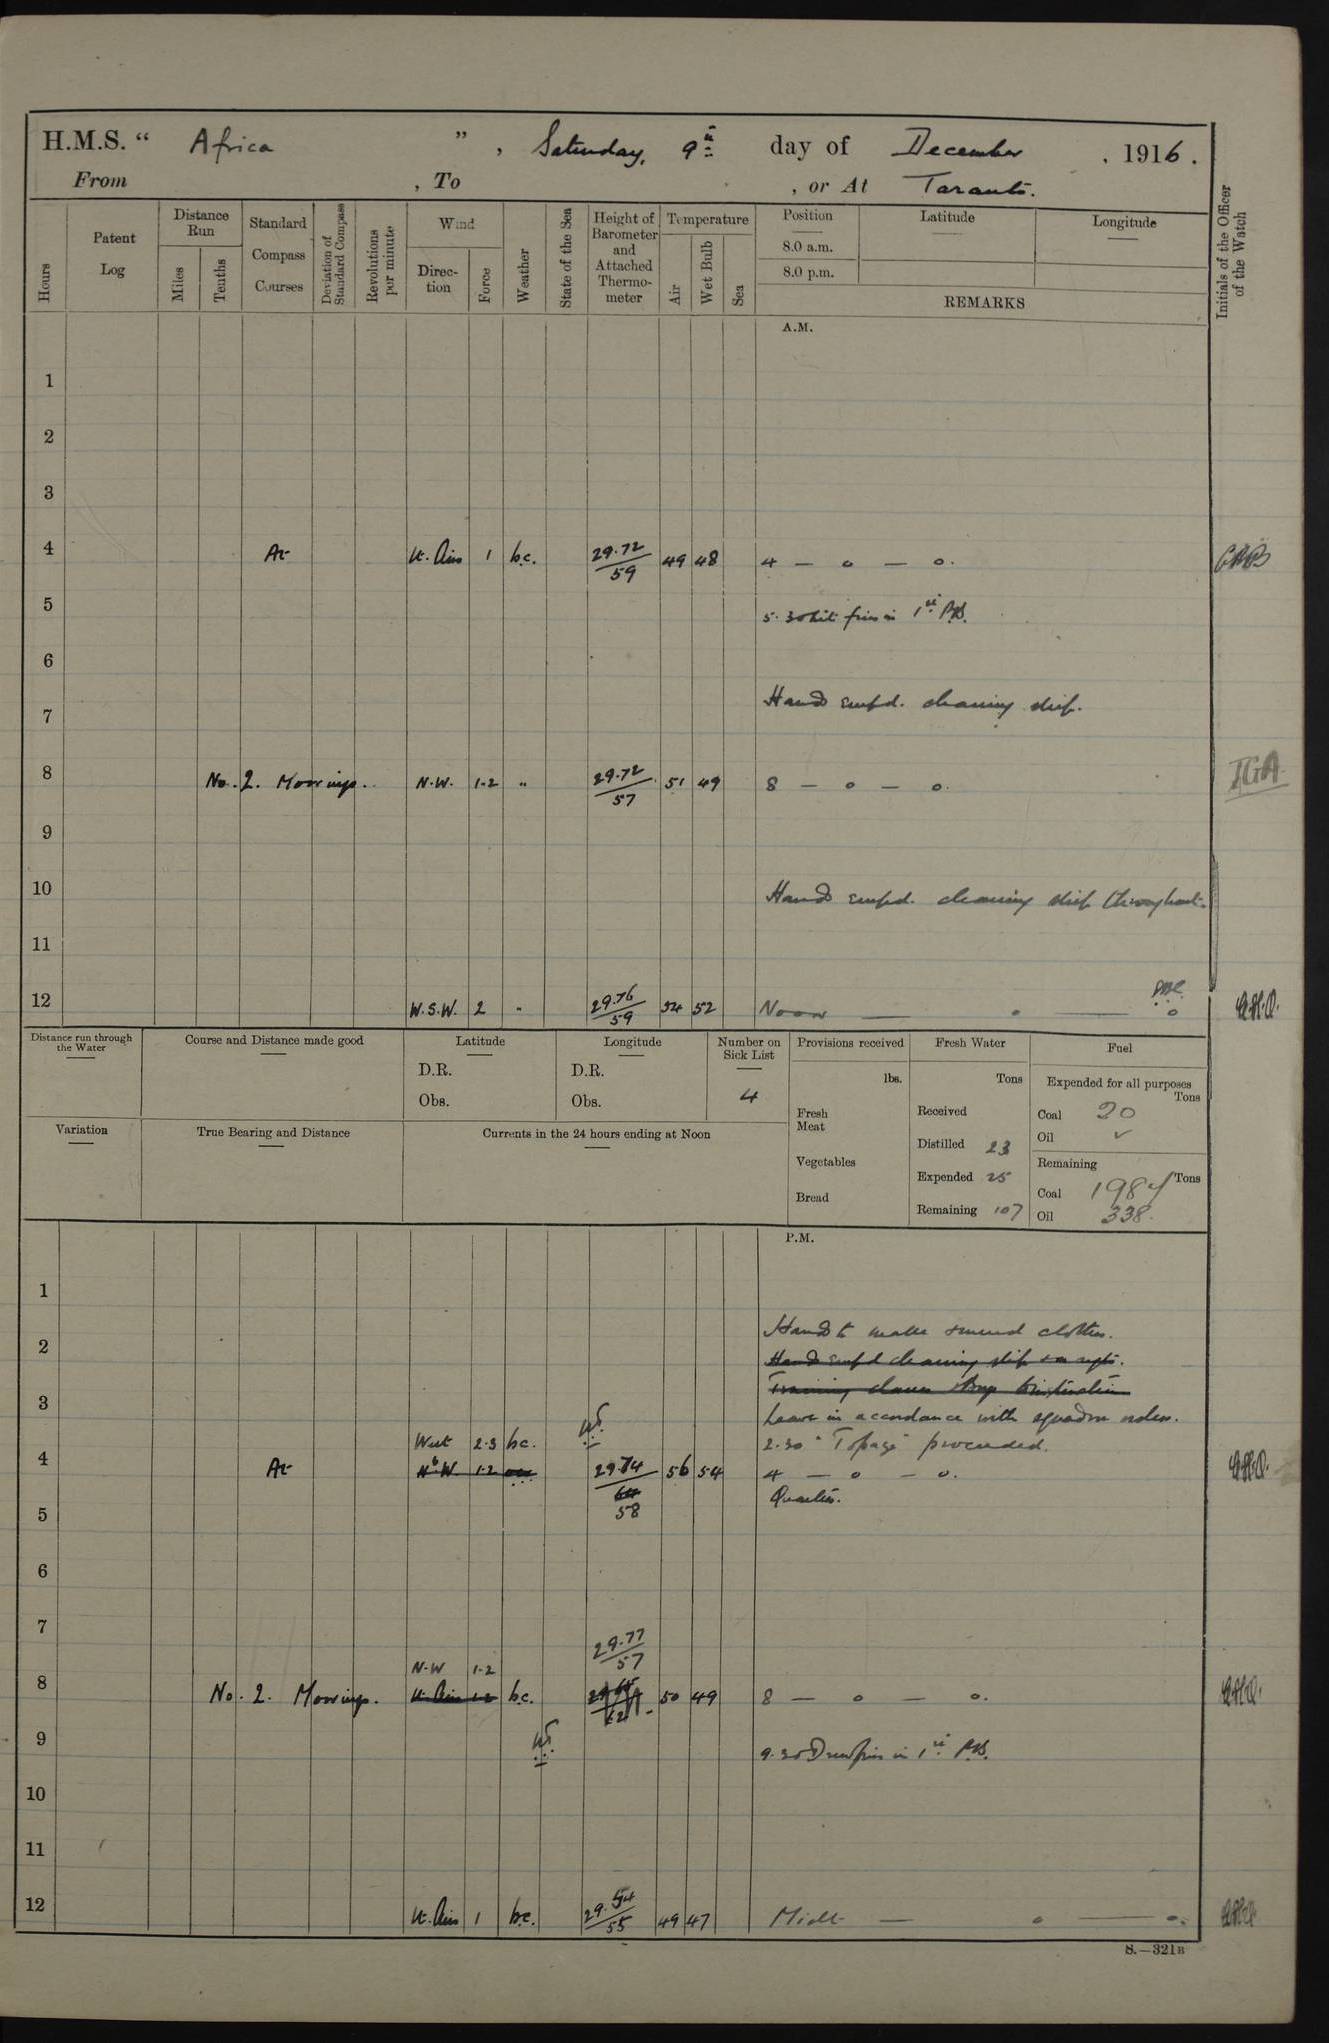 H.M.S. “ Africa ” , Saturday, 9th day of December , 1916 .
From , To , or At Taranto.
Hours
Patent Log
Distance Run
Miles
Tenths
Standard Compass Courses
Deviation of Standard Compass
Revolutions per minute
Wind
Direc-tion
Force
Weather
State of the Sea
Height of Barometer and Attached Thermo-meter
Temperature
Air
Wet Bulb
Sea
Position
Latitude
Longitude
8.0 a.m.
8.0 p.m.
REMARKS
Initials of the Officer of the Watch
A.M.
1
2
3
4 At Lt. Airs 1 b.c. 29.72/59 49 48 4 — o — o.
5 5.30 Lit fires in 1st P.B.
6
Hands empd. cleaning ship.
7
8 No. 2. Moorings. N.W. 1-2 " 29.72/57 51 49 8 — o — o. IGA
9
10 Hands empd. cleaning ship throughout.
11
12 W.S.W. 2 " 29.76/59 54 52 Noon — o — o
Distance run through the Water
Course and Distance made good
Latitude
D.R.
Obs.
Longitude
D.R.
Obs.
Number on Sick List
4
Provisions received
lbs.
Fresh Meat
Vegetables
Bread
Fresh Water
Tons
Received
Distilled 23
Expended 25
Remaining 107
Fuel
Expended for all purposes
Tons
Coal 20
Oil ✓
Remaining
Tons
Coal 1984
Oil 338.
Variation
True Bearing and Distance
Currents in the 24 hours ending at Noon
P.M.
1
Hands to make & mend clothes.
2 Hands empd cleaning ship
3 Training classes
Leave in accordance with squadron orders.
West 2-3 b.c. 2.30 "Topaze" proceeded.
4 At N. W. 1-2 29.74/58 56 54 4 — o — o.
Quarters.
5
6
7
N.W 1-2 29.77/57
8 No. 2. Moorings. Lt. Airs 1-2 b.c. 50 49 8 — o — o.
9 9.30 Drew fires in 1st P.B.
10
11
12 Lt. Airs 1 b.c. 29.54/55 49 47 Midt — o — o.
S.—321B